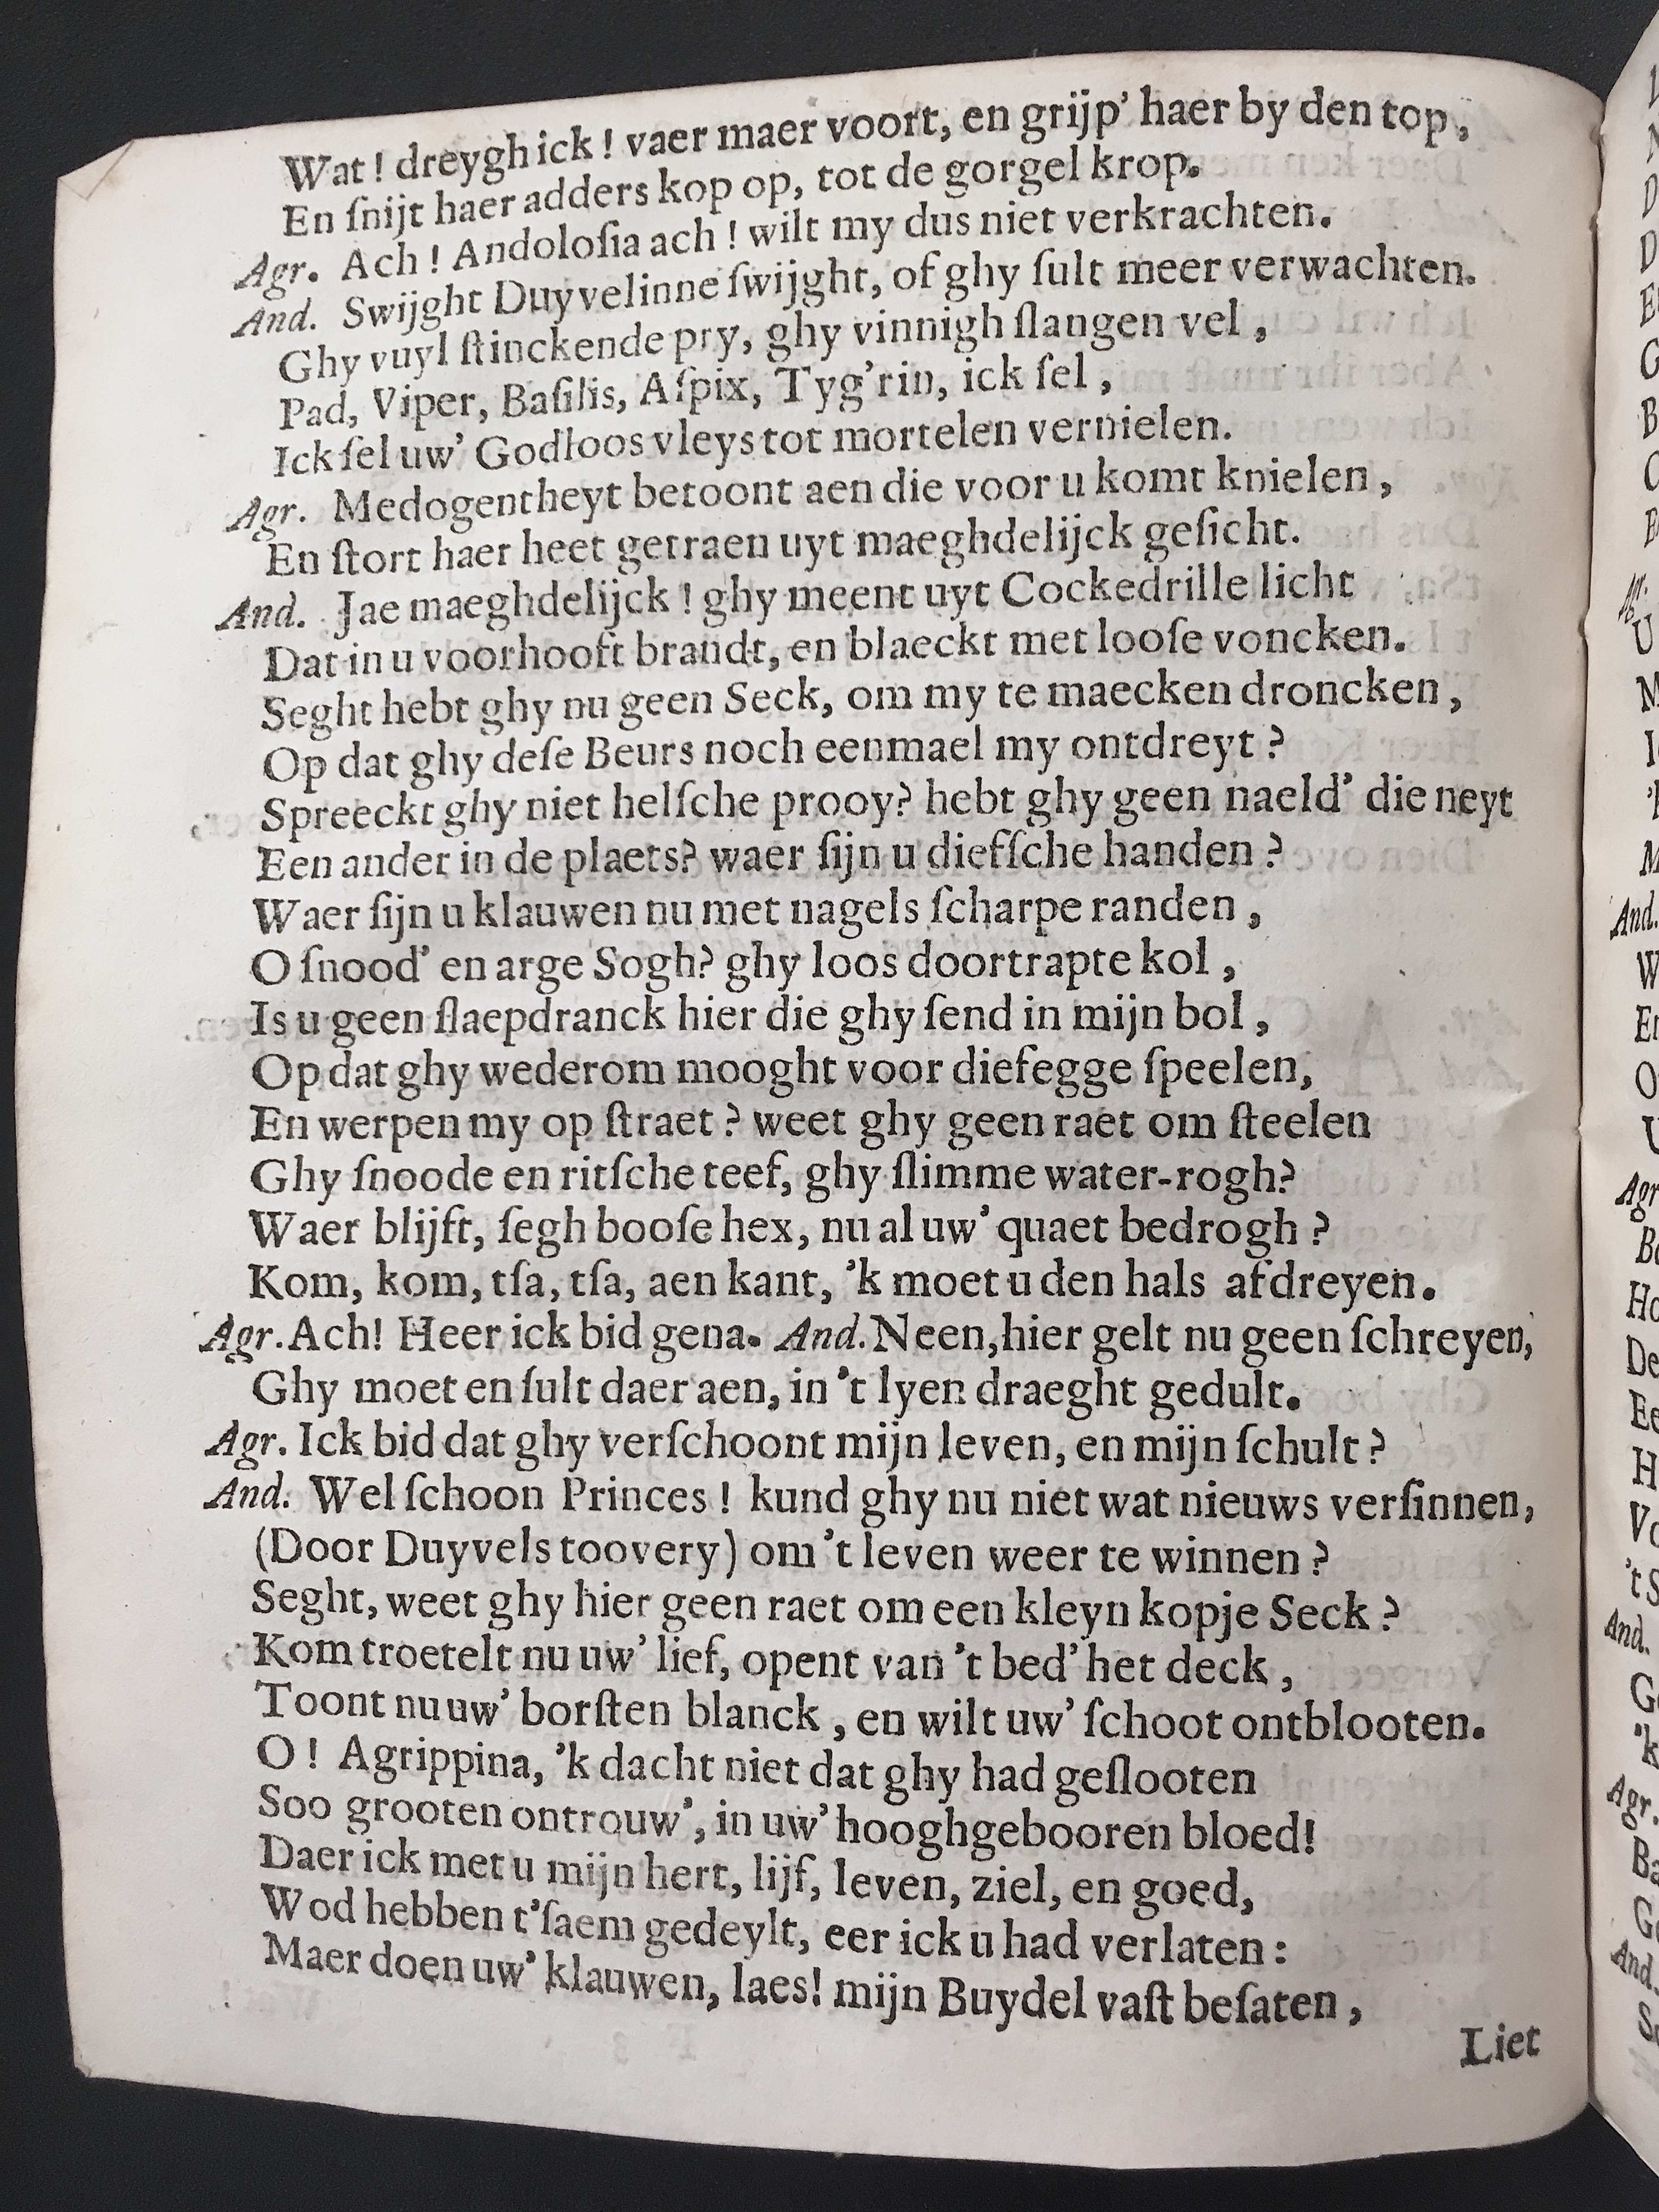 Wat! dreygh ick! vaer maer voort, en grijp' haer by den top,
En ſnijt haer adders kop op, tot de gorgel krop.
Agr. Ach! Andoloſia ach! wilt my dus niet verkrachten.
And. Swijght Duyvelinne ſwijght, of ghy ſult meer verwachten.
Ghy vuyl ſtinckende pry, ghy vinnigh ſlangen vel,
Pad, Viper, Baſilis, Aſpix, Tyg'rin, ick ſel,
Ick ſel uw' Godloos vleys tot mortelen vernielen.
Agr. Medogentheyt betoont aen die voor u komt knielen,
En ſtort haer heet getraen uyt maeghdelijck geſicht.
And. Jae maeghdelijck! ghy meent uyt Cockedrille licht
Dat in u voorhooft brandt, en blaeckt met looſe voncken.
Seght hebt ghy nu geen Seck, om my te maecken droncken,
Op dat ghy deſe Beurs noch eenmael my ontdreyt?
Spreeckt ghy niet helſche prooy? hebt ghy geen naeld' die neyt
Een ander in de plaets? waer ſijn u diefſche handen?
Waer ſijn u klauwen nu met nagels ſcharpe randen,
O ſnood' en arge Sogh? ghy loos doortrapte kol,
Is u geen ſlaepdranck hier die ghy ſend in mijn bol,
Op dat ghy wederom mooght voor diefegge ſpeelen,
En werpen my op ſtraet? weet ghy geen raet om ſteelen
Ghy ſnoode en ritſche teef, ghy ſlimme water-rogh?
Waer blijft, ſegh booſe hex, nu al uw' quaet bedrogh?
Kom, kom, tſa, tſa, aen kant, 'k moet u den hals afdreyen.
Agr. Ach! Heer ick bid gena. And. Neen, hier gelt nu geen ſchreyen,
Ghy moet en ſult daer aen, in 't lyen draeght gedult.
Agr. Ick bid dat ghy verſchoont mijn leven, en mijn ſchult?
And. Wel ſchoon Princes! kund ghy nu niet wat nieuws verſinnen,
(Door Duyvels toovery) om 't leven weer te winnen?
Seght, weet ghy hier geen raet om een kleyn kopje Seck?
Kom troetelt nu uw' lief, opent van 't bed' het deck,
Toont nu uw' borſten blanck, en wilt uw' ſchoot ontblooten.
O! Agrippina, 'k dacht niet dat ghy had geſlooten
Soo grooten ontrouw', in uw' hooghgebooren bloed!
Daer ick met u mijn hert, lijf, leven, ziel, en goed,
Wod hebben t'ſaem gedeylt, eer ick u had verlaten:
Maer doen uw' klauwen, laes! mijn Buydel vaſt beſaten,
Liet